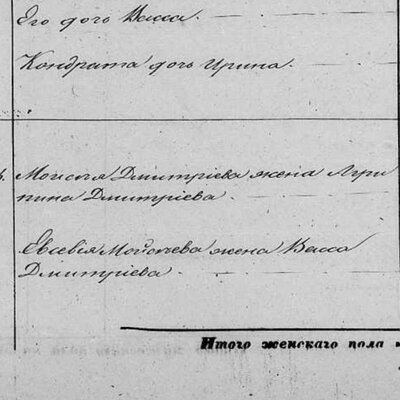 Его дочь Васса
Кондрата дочь Ирина
Моисея Дмитріева жена Агри
пина Дмитріева
Евсевія Мойсеева жена Васса
Дмитріева
Итого женскаго пола